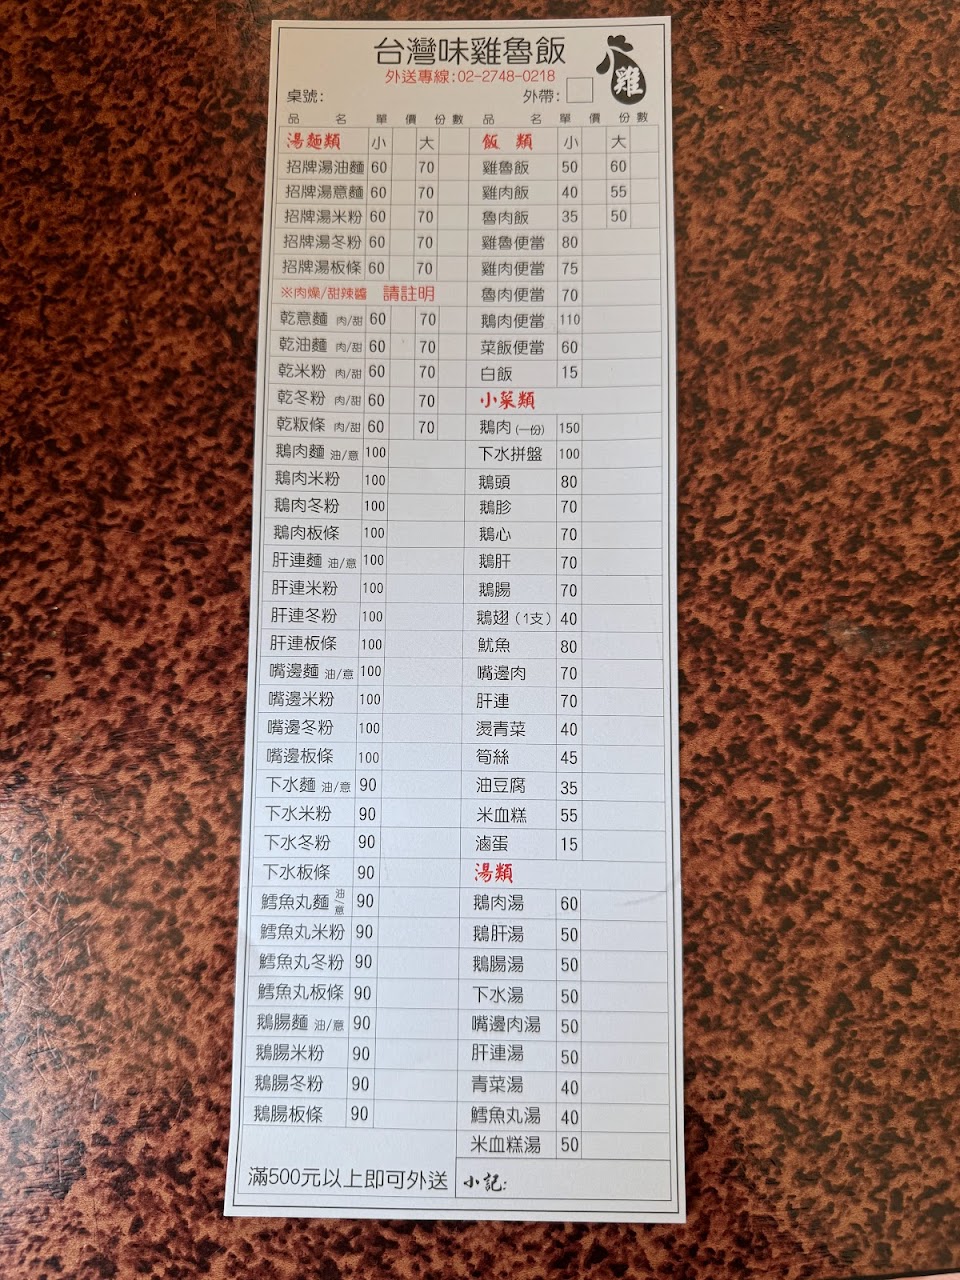 台灣味雞魯飯
雞
外送專線:02-2748-0218
桌號:
外帶:
品 名 單 價 份 數
湯麵類 小 大
招牌湯油麵 60 70
招牌湯意麵 60 70
招牌湯米粉 60 70
招牌湯冬粉 60 70
招牌湯板條 60 70
※肉燥/甜辣醬 請註明
乾意麵 肉/甜 60 70
乾油麵 肉/甜 60 70
乾米粉 肉/甜 60 70
乾冬粉 肉/甜 60 70
乾粄條 肉/甜 60 70
鵝肉麵 油/意 100
鵝肉米粉 100
鵝肉冬粉 100
鵝肉板條 100
肝連麵 油/意 100
肝連米粉 100
肝連冬粉 100
肝連板條 100
嘴邊麵 油/意 100
嘴邊米粉 100
嘴邊冬粉 100
嘴邊板條 100
下水麵 油/意 90
下水米粉 90
下水冬粉 90
下水板條 90
鱈魚丸麵 油/意 90
鱈魚丸米粉 90
鱈魚丸冬粉 90
鱈魚丸板條 90
鵝腸麵 油/意 90
鵝腸米粉 90
鵝腸冬粉 90
鵝腸板條 90
滿500元以上即可外送
品 名 單 價 份 數
飯 類 小 大
雞魯飯 50 60
雞肉飯 40 55
魯肉飯 35 50
雞魯便當 80
雞肉便當 75
魯肉便當 70
鵝肉便當 110
菜飯便當 60
白飯 15
小菜類
鵝肉(一份) 150
下水拼盤 100
鵝頭 80
鵝胗 70
鵝心 70
鵝肝 70
鵝腸 70
鵝翅(1支) 40
魷魚 80
嘴邊肉 70
肝連 70
燙青菜 40
筍絲 45
油豆腐 35
米血糕 55
滷蛋 15
湯類
鵝肉湯 60
鵝肝湯 50
鵝腸湯 50
下水湯 50
嘴邊肉湯 50
肝連湯 50
青菜湯 40
鱈魚丸湯 40
米血糕湯 50
小記: